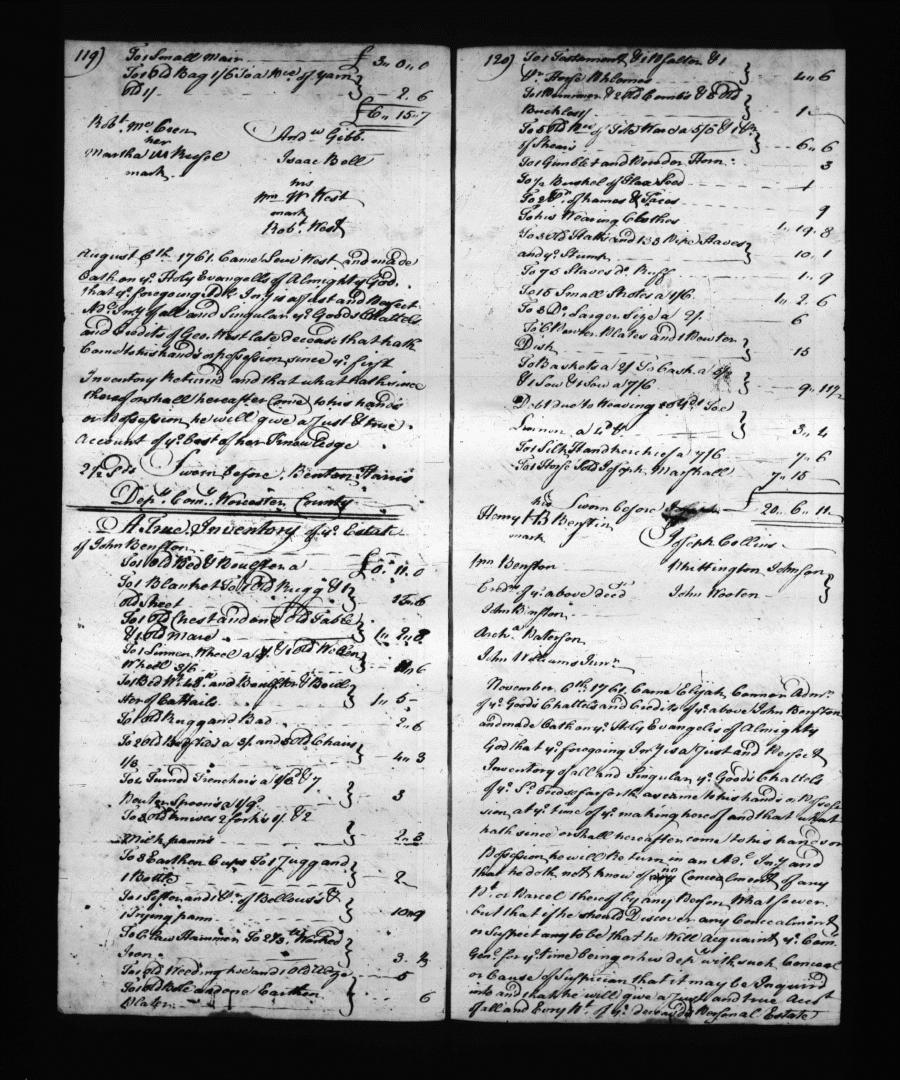 119) To 1 Small Mair £ 3..0..0
To 1 Old Bag 1/6 To a Pce of yarn
Old 1/ 2..6
£6..15..7
Robt. Mc.
her
Martha M Russel
mark
Andw Gibb.
Isaac Bell
his
Wm W West
mark
Robt. West
August 6th. 1761. Came West and made
Oath on ye. Holy Evangells of Almighty God.
that ye. foregoing Adl. Iny. is a Just and Perfect
Adl. Iny of all and Singular ye. Goods Chattels
and Credits of Geo. West late decease that hath
Come to his hands or possession since ye. first
Inventory Returnd and that what hath since
thereof or shall hereafter Come to his hands
or Possession he will give a Just & true
Account of ye. best of her Knowledge
Sworn before Benton Harris
Depy. Com. Worcester County
A True Inventory of ye. Estate
of John Benston
To 1 Old Bed & Boulster a £0..11..0
To 1 Blanket To 1 Old Rugg & 1
Old Sheet
To 1 Old Chest and one Old Table
& 1 Old Mare
To 1 Linnen Wheel a & 1 Old Wollen
Wheel 3/6
To 1 Bed and Boulster &
of Cattails 1..5
To 1 Old Rugg and Bad 2..6
To 2 Old Bedsteds a 3/ and 3 Old Chairs
1/8 4..3
To 6 Turned Trenchers a & 7
Pewter Spoons a 3
To 3 Old Knives 2 forks 1/ & 2
Milk panns 2..3
To 3 Earthen Cups To 1 Jugg and
1 Bottle 2
To 1 Sifter and 1 Pr. of Bellows &
1 Frying pann 10..9
To Hammer To Worked
Iron
To 1 Old Weeding hoe and 1 Old Adge 5
To 1 Old and one Earthen
Plater 6
120) To 1 Testament & 1 Psalter & 1
4..6
To & 2 Old Combs & 8 Old
Buckles/ 1
To 5 Old of Ware a & 1 Pr
of Shears 6..6
To 1 Gimblet and Powder Horn 3
To 1/2 Bushel of Flax Seed 1
To 2 Pr. of hames & 9
To his Wearing Clothes 1..19..8
To 3 Old and 133 Pipe Staves
and ye. Stump 10..1
To 95 Staves Do. Ruff 1..9
To 15 Small Shotes a 1/6 1..2..6
To 3 Do. Larger Size a 2/ 6
To 6 Pewter Plates and 1 Pewter
Dish 15
To Baskets a 2/ To Cask a
& 1 Sow & 1 Sow a 7/6
Debt due to Weaving
a 3..4
To 1 Silk Handkerchief a 7/6 7..6
To 1 Horse Sold Joseph Marshall 7..15
£ 20..6..11
his Sworn before
Henry HB Benston
mark
Joseph Collins
Wm Benston Whittington Johnson
Credrs. of ye. above deced John Wooten
John Benston
Archd. Paterson
John Williams Junr.
November 6th. 1761. Came Elijah Connor Admr.
of ye. Goods Chattels and Credits of ye. above John Benston
and made Oath on ye. Holy Evangelis of Almighty
God that ye. foregoing Iny. is a Just and Perfect
Inventory of all and Singular ye. Goods Chattels
of ye. Sd. deced so far forth as came to his hands or Posses-
sion at ye. time of ye. making hereof and that what
hath since or shall hereafter come to his hands or
Possession he will Return in an Adl. Iny and
that he doth not know of any Concealment of any
Pt. or Parcel thereof by any Person Whatsoever
but that if he should Discover any Concealment
or Suspect any to be that he Will Acquaint ye. Com.
Genl. for ye. time being or his depy. with such Conceal
or Cause of Suspician that it may be Inquired
into and that he will give a Just and true Acct
of all and Every Pt. of ye. deceaseds Personal Estate